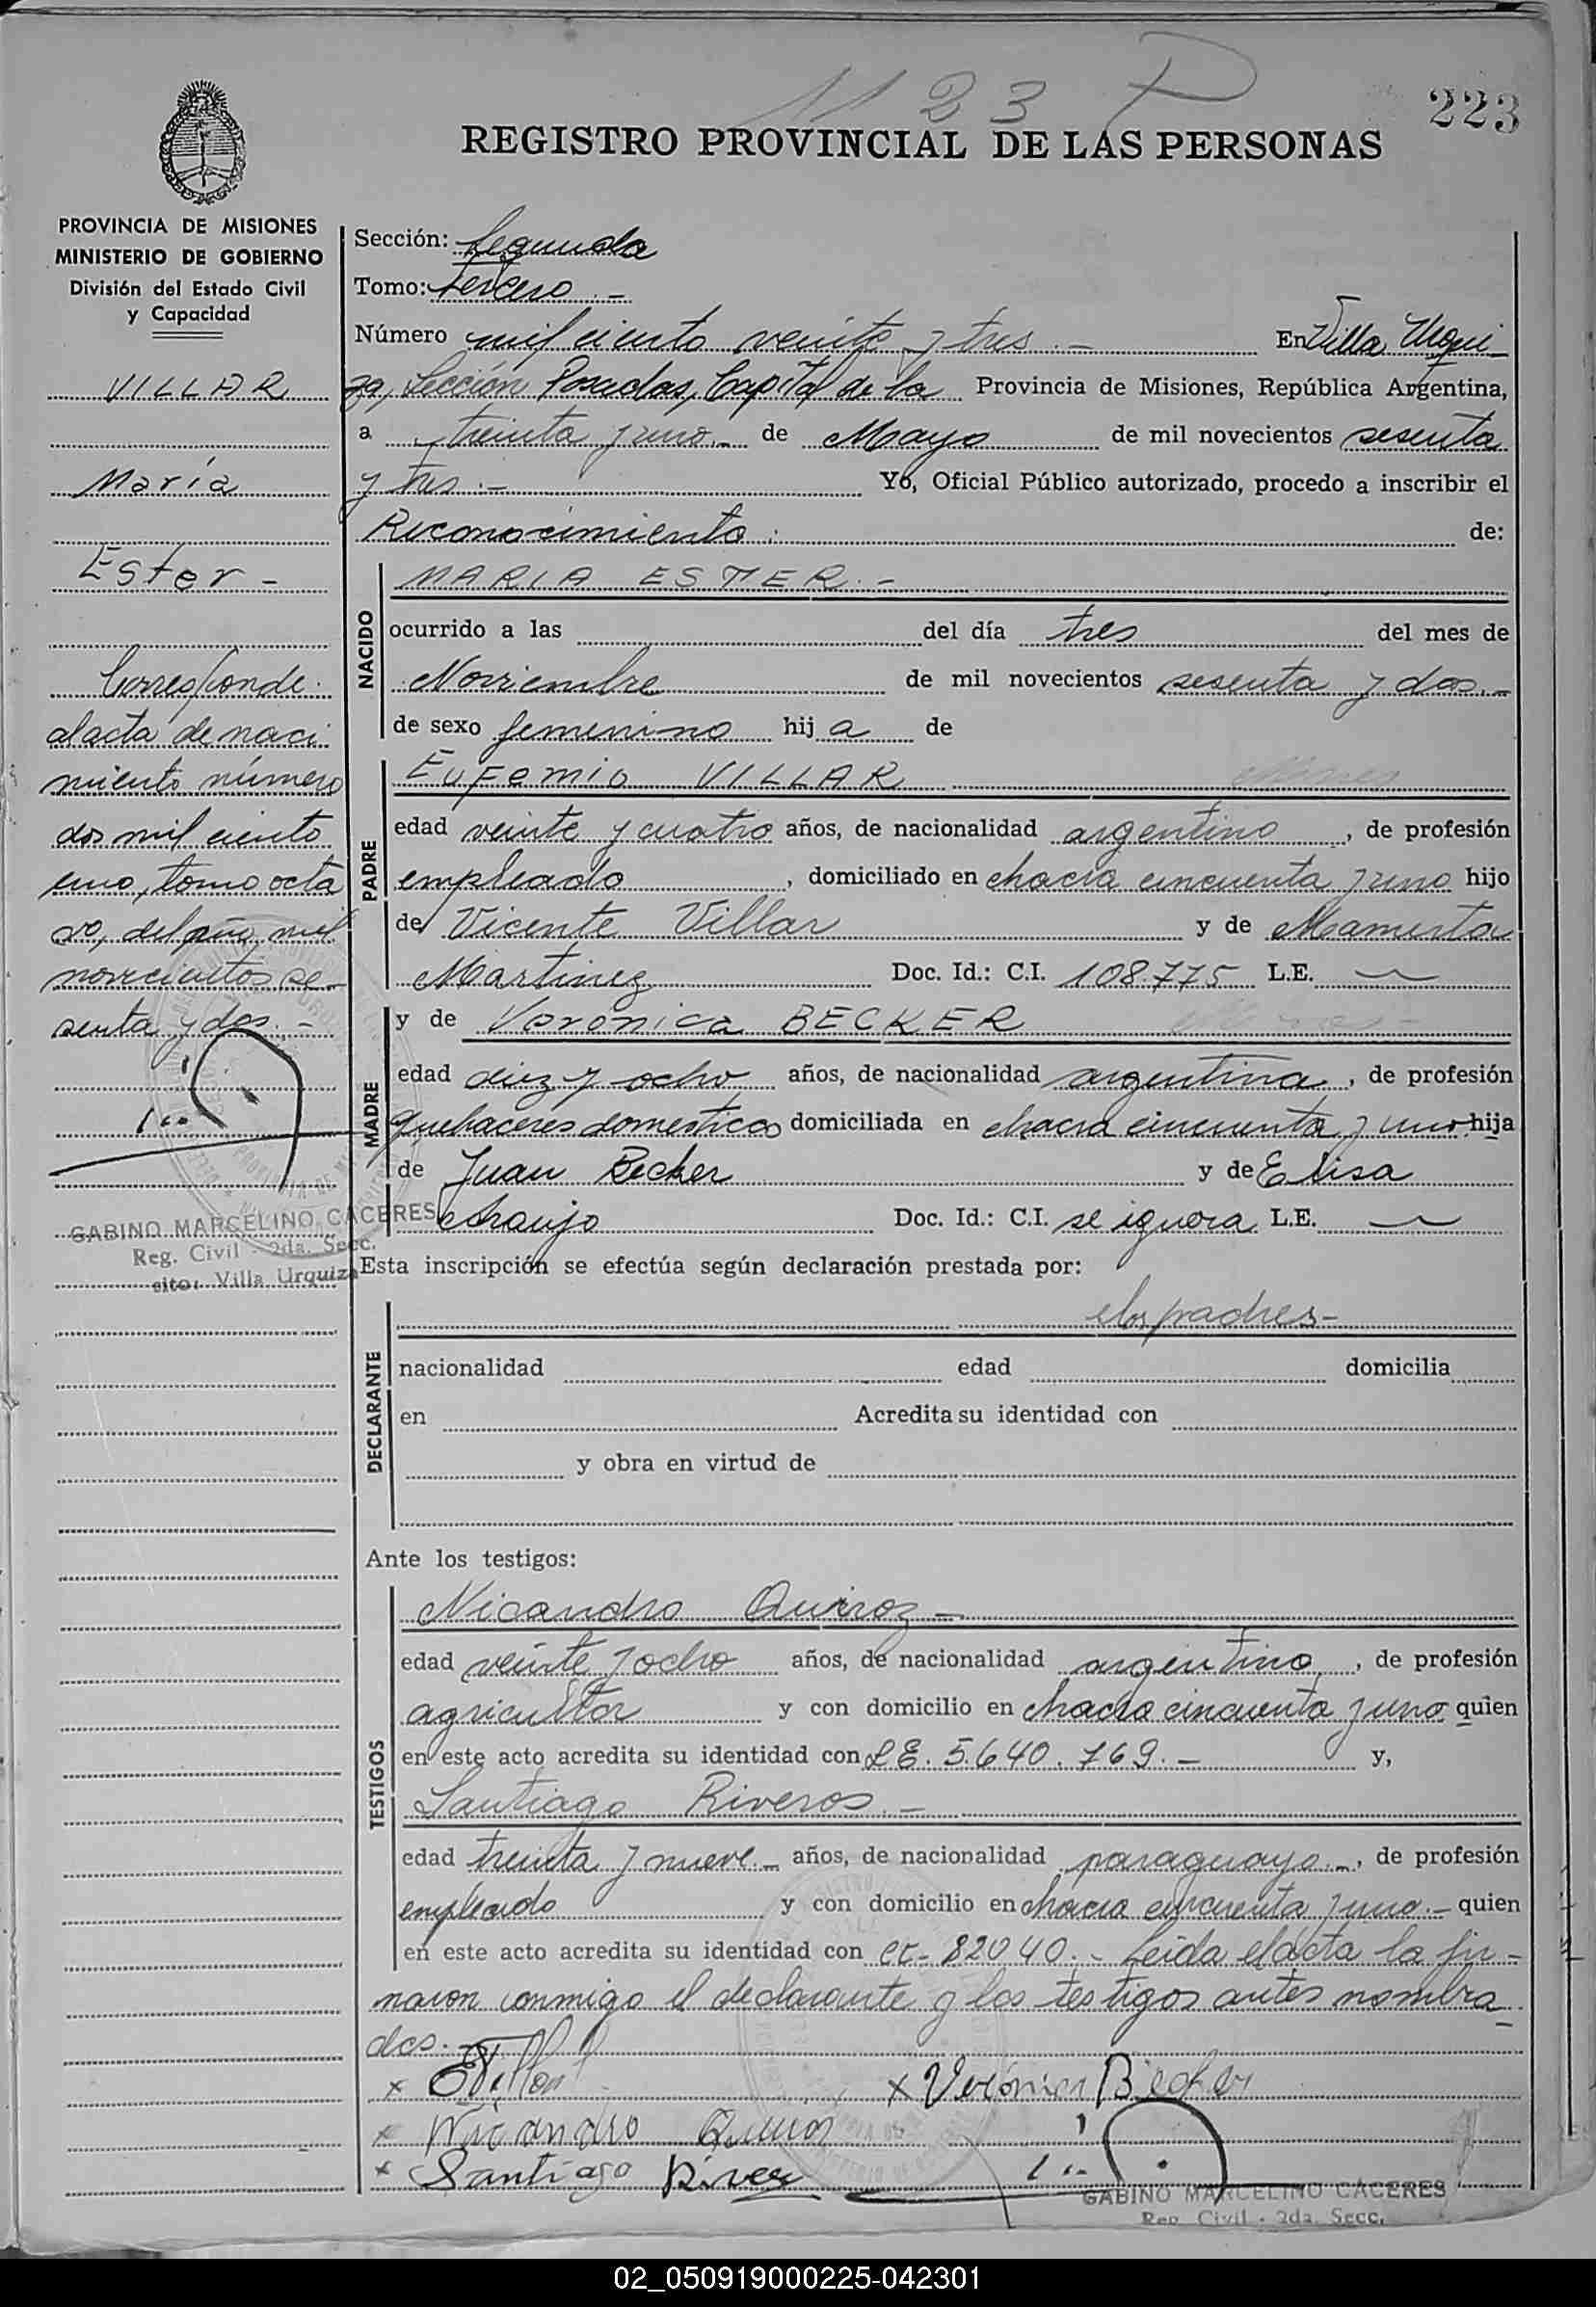 1123 P
223
REGISTRO PROVINCIAL DE LAS PERSONAS
PROVINCIA DE MISIONES
MINISTERIO DE GOBIERNO
División del Estado Civil
y Capacidad
VILLAR
María
Ester -
Corresponde
al acta de naci
miento número
dos mil ciento
uno, tomo octa
vo, del año mil
novecientos se-
senta y dos. -
GABINO MARCELINO CACERES
Reg. Civil - 2da. Secc.
sito: Villa Urquiza
Sección: Segunda
Tomo: tercero . -
Número mil ciento veinte y tres . - En Villa Urqui-
za, Sección Posadas, Capital de la Provincia de Misiones, República Argentina,
a treinta y uno - de Mayo de mil novecientos sesenta
y tres . - Yo, Oficial Público autorizado, procedo a inscribir el
Reconocimiento . de:
NACIDO
MARIA ESTER . -
ocurrido a las del día tres del mes de
Noviembre de mil novecientos sesenta y dos. -
de sexo femenino hij a de
PADRE
Eufemio VILLAR
edad veinte y cuatro años, de nacionalidad argentino , de profesión
empleado , domiciliado en chacra cincuenta y uno hijo
de Vicente Villar y de Mamerta
Martinez Doc. Id.: C.I. 108.775 L.E. —
MADRE
y de Verónica BECKER
edad diez y ocho años, de nacionalidad argentina , de profesión
quehaceres domesticos domiciliada en chacra cincuenta y uno hija
de Juan Becker y de Elisa
Araujo Doc. Id.: C.I. se ignora L.E. —
Esta inscripción se efectúa según declaración prestada por:
DECLARANTE
los padres -
nacionalidad edad domicilia
en Acredita su identidad con
y obra en virtud de
Ante los testigos:
TESTIGOS
Nicandro Quiroz -
edad veinte y ocho años, de nacionalidad argentino , de profesión
agricultor y con domicilio en chacra cincuenta y uno quien
en este acto acredita su identidad con L.E. 5.640.769. - y,
Santiago Riveros . -
edad treinta y nueve . - años, de nacionalidad paraguayo . - , de profesión
empleado y con domicilio en chacra cincuenta y uno . - quien
en este acto acredita su identidad con CI - 82040 . - Leída el acta la fir-
maron conmigo el declarante y los testigos antes nombra-
dos. -
x EVillar x Verónica Becker
x Nicandro Quiroz
x Santiago River
GABINO MARCELINO CACERES
Reg. Civil - 2da. Secc.
02_050919000225-042301